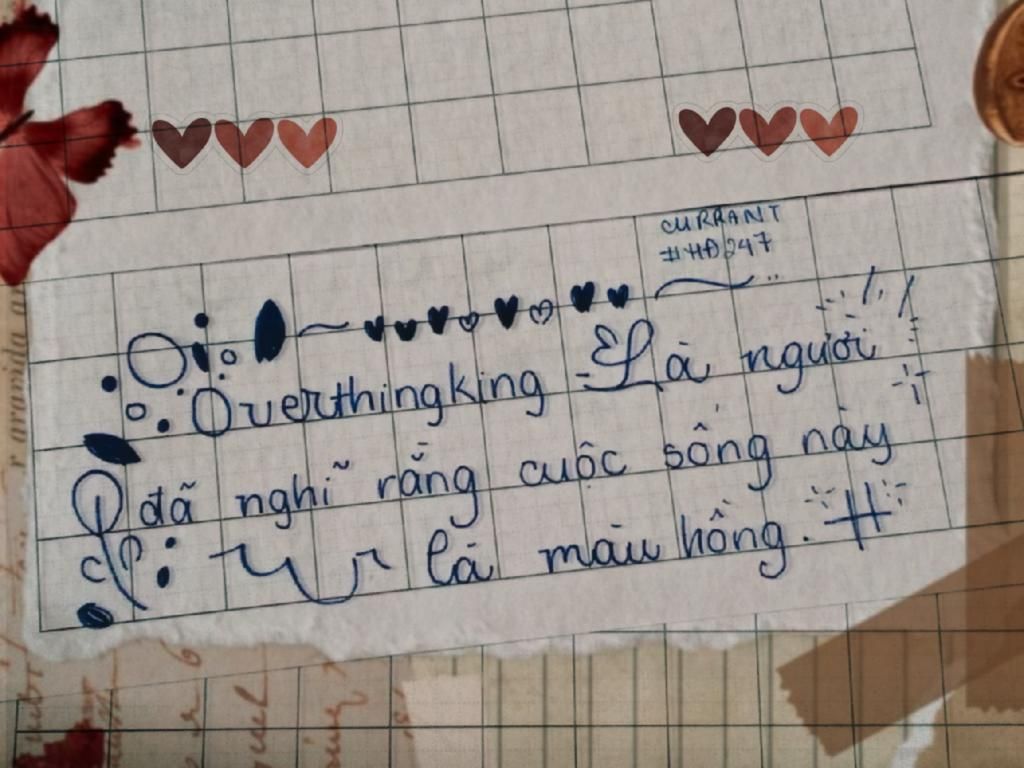 CURRANT
#HĐ247
Overthingking Là người
đã nghĩ rằng cuộc sống này
là màu hồng. #